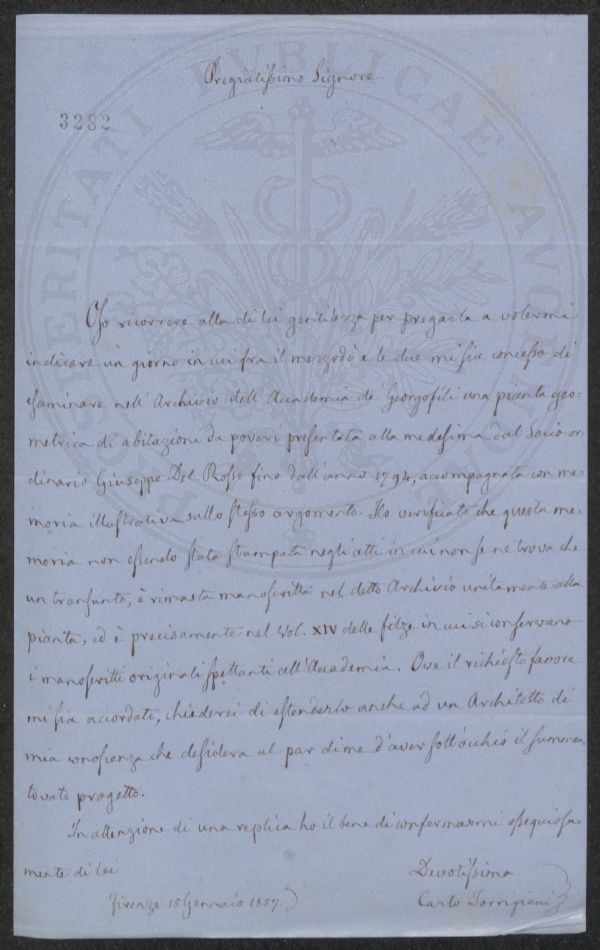 Pregiatissimo Signore
3282
PROSPERITATI PUBLICAE AUGENDAE
Oso ricorrere alla di lei gentilezza per pregarla a volermi
indicare un giorno in cui fra il mezzodì e le due mi sia concesso di
esaminare nell'Archivio dell'Accademia de' Georgofili una pianta geo=
metrica di abitazioni da poveri presentata alla medesima dal Socio or=
dinario Giuseppe Del Rosso fino dall'anno 1794, accompagnata con me=
moria illustrativa sullo stesso argomento. Ho verificato che questa me=
moria non essendo stata stampata negli atti in cui non se ne trova che
un transunto, è rimasta manoscritta nel detto Archivio unitamente alla
pianta, ed è precisamente nel Vol. XIV delle filze in cui si conservano
i manoscritti originali spettanti all'Accademia. Ove il richiesto favore
mi sia accordato, chiederei di estenderlo anche ad un Architetto di
mia conoscenza che desidera al par di me d'aver sott'occhio il summen=
tovato progetto.
In attenzione di una replica ho il bene di confermarmi ossequiosa=
mente di lei
Devotissimo
Firenze 15 Gennaio 1857.
Carlo Torrigiani